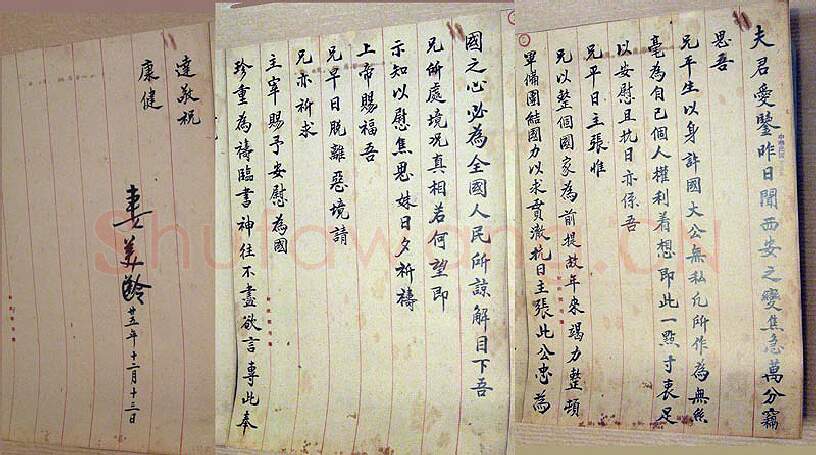 夫君愛鑒昨日聞西安之變焦急萬分竊
思吾
兄平生以身許國大公無私凡所作為無絲
毫為自己個人權利着想即此一點寸衷足
以安慰且抗日亦係吾
兄平日主張惟
兄以整個國家為前提故年來竭力整頓
軍備團結國力以求貫澈抗日主張此公忠為
國之心必為全國人民所諒解目下吾
兄所處境況真相若何望即
示知以慰焦思妹日夕祈禱
上帝賜福吾
兄早日脫離惡境請
兄亦祈求
主宰賜予安慰為國
珍重為禱臨書神往不盡欲言專此奉
達敬祝
康健
妻美齡廿五年十二月十三日
Shufawang.cn